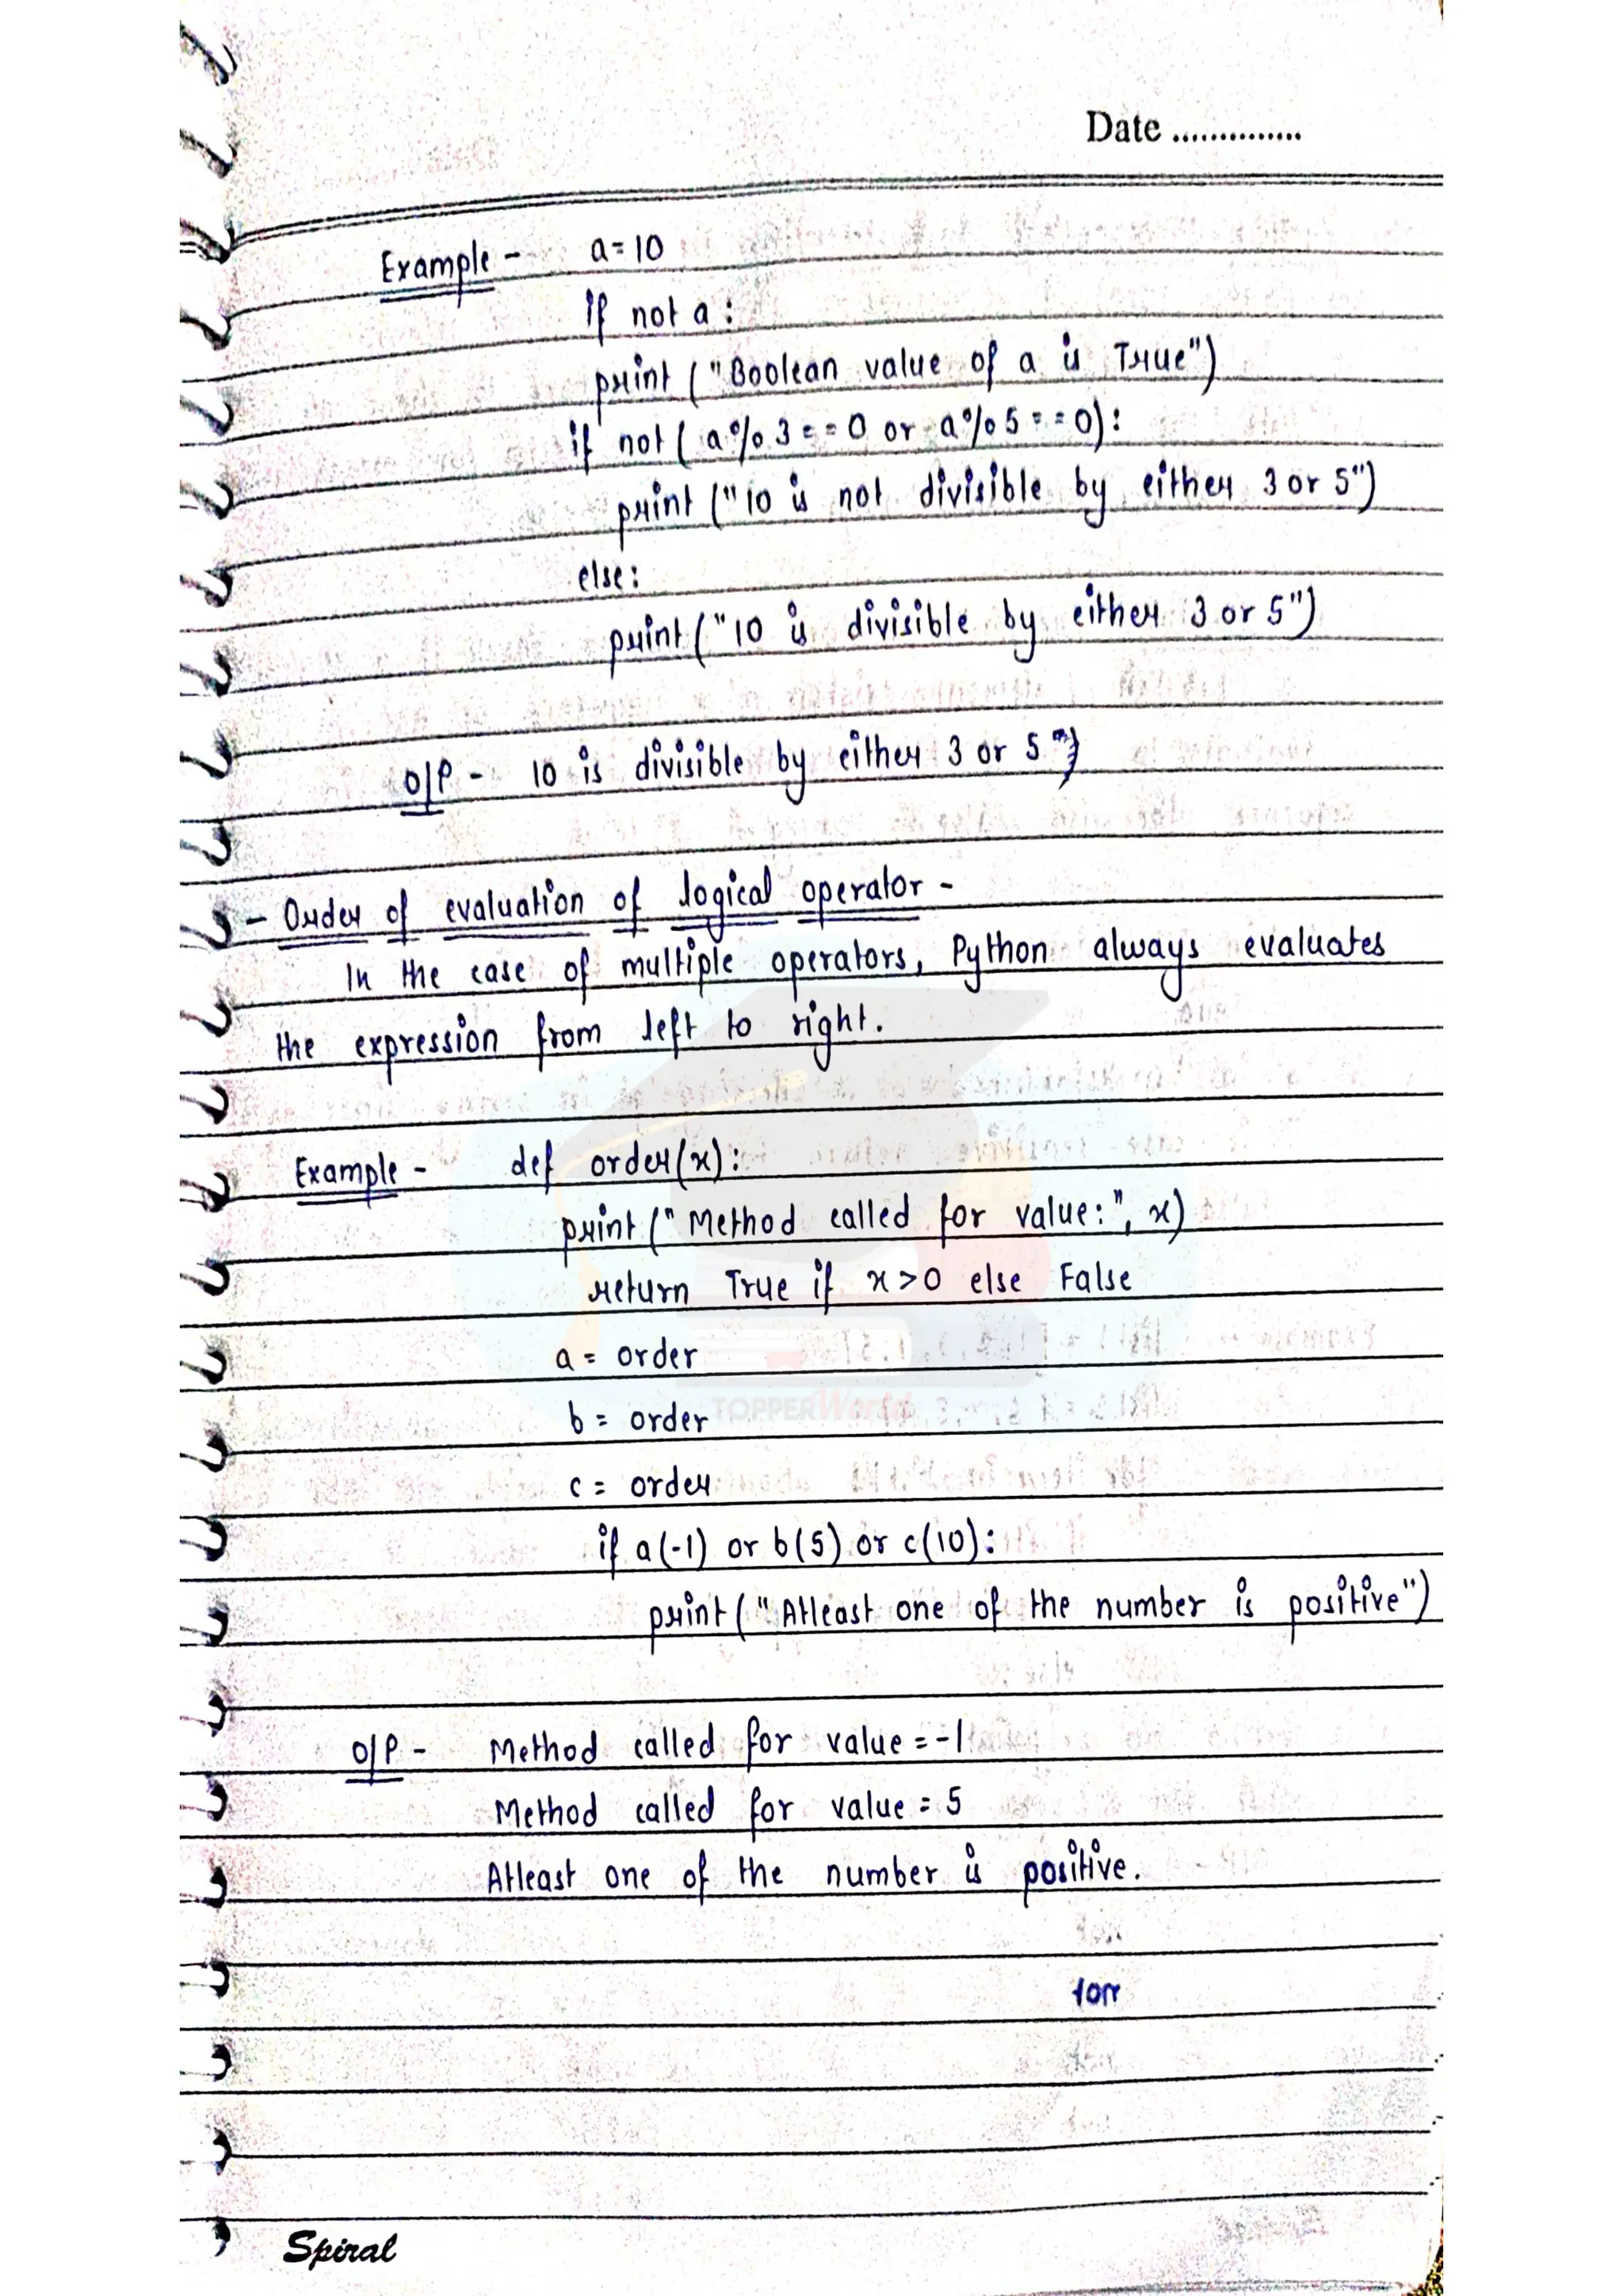 Date ..............
Example - a=10
If not a :
print ("Boolean value of a is True")
if not ( a % 3 == 0 or a % 5 == 0):
print ("10 is not divisible by either 3 or 5")
else:
print ("10 is divisible by either 3 or 5")
O/P - 10 is divisible by either 3 or 5 ")
- Order of evaluation of logical operator -
In the case of multiple operators, Python always evaluates
the expression from left to right.
Example - def order(x):
print (" Method called for value:", x)
return True if x>0 else False
a = order
TOPPERWorld
b = order
c = order
if a(-1) or b(5) or c(10):
print (" Atleast one of the number is positive")
O/P - Method called for value = -1
Method called for value = 5
Atleast one of the number is positive.
Spiral